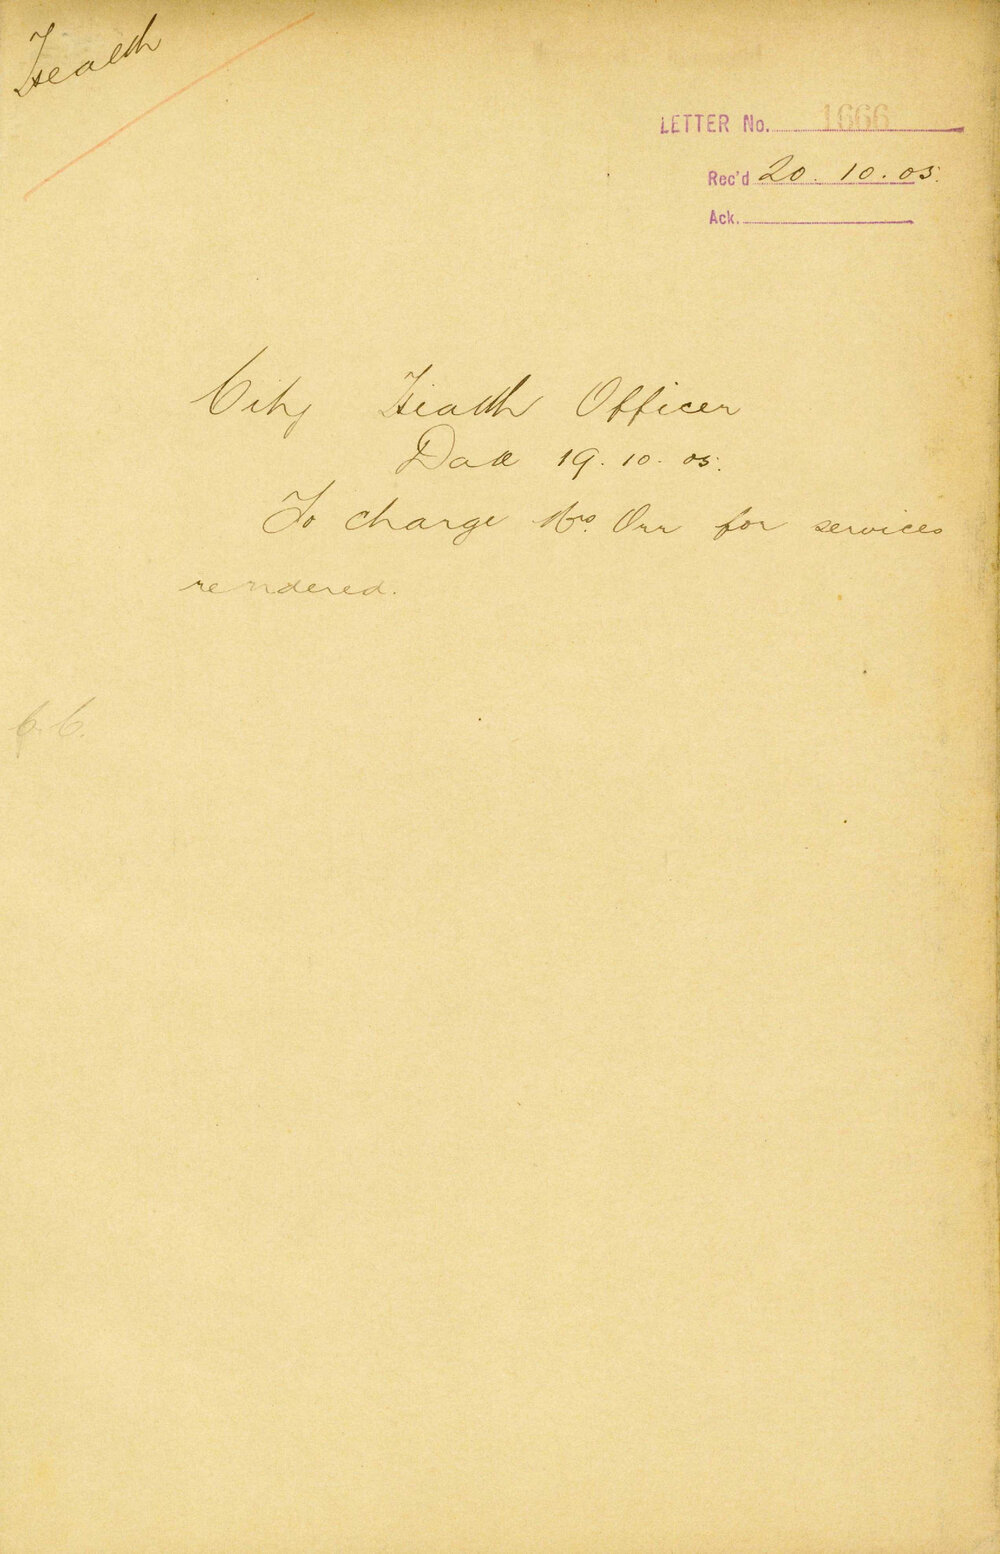 Health
LETTER No. 1666
Rec'd 20.10.05.
Ack.
City Health Officer
Date 19.10.05.
To charge Mrs. Orr for services
rendered.
C.C.